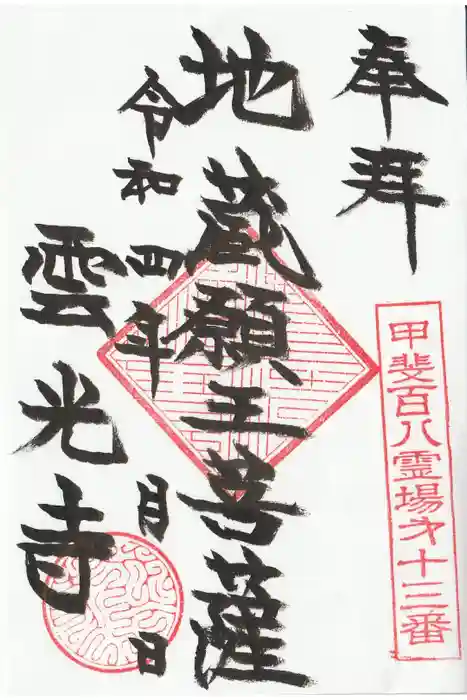 奉拝
甲斐百八霊場㐧十三番
地蔵願王菩薩
令和四年 月 日
雲光寺